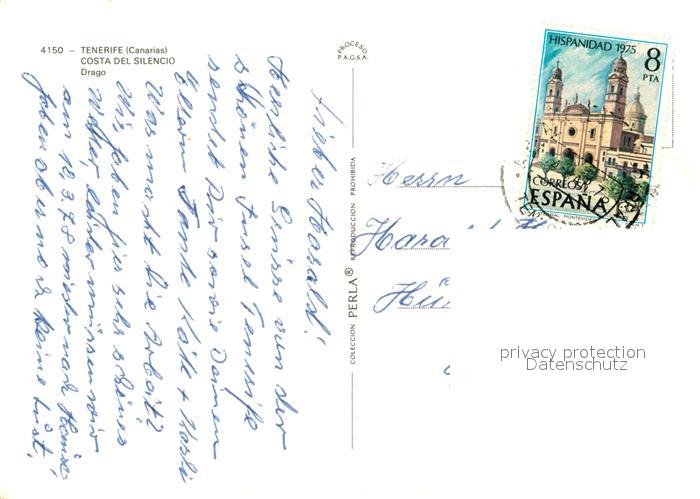 4150 – TENERIFE (Canarias)
COSTA DEL SILENCIO
Drago
PROCESO
P.A.G.S.A.
HISPANIDAD 1975
8
PTA
CORREOS
ESPAÑA
Lieber Harald!
Herzliche Grüsse von der
schönen Insel Teneriffe
sendet Dir sowie Deinen
Eltern Tante Käte +
Was macht die Arbeit?
Wir haben hier sehr schönes
Wetter, leider müssen wir
am 18.3.78 wieder nach Hause
haben aber noch keine Lust!
COLECCION PERLA® REPRODUCCION PROHIBIDA
Herrn
privacy protection
Datenschutz